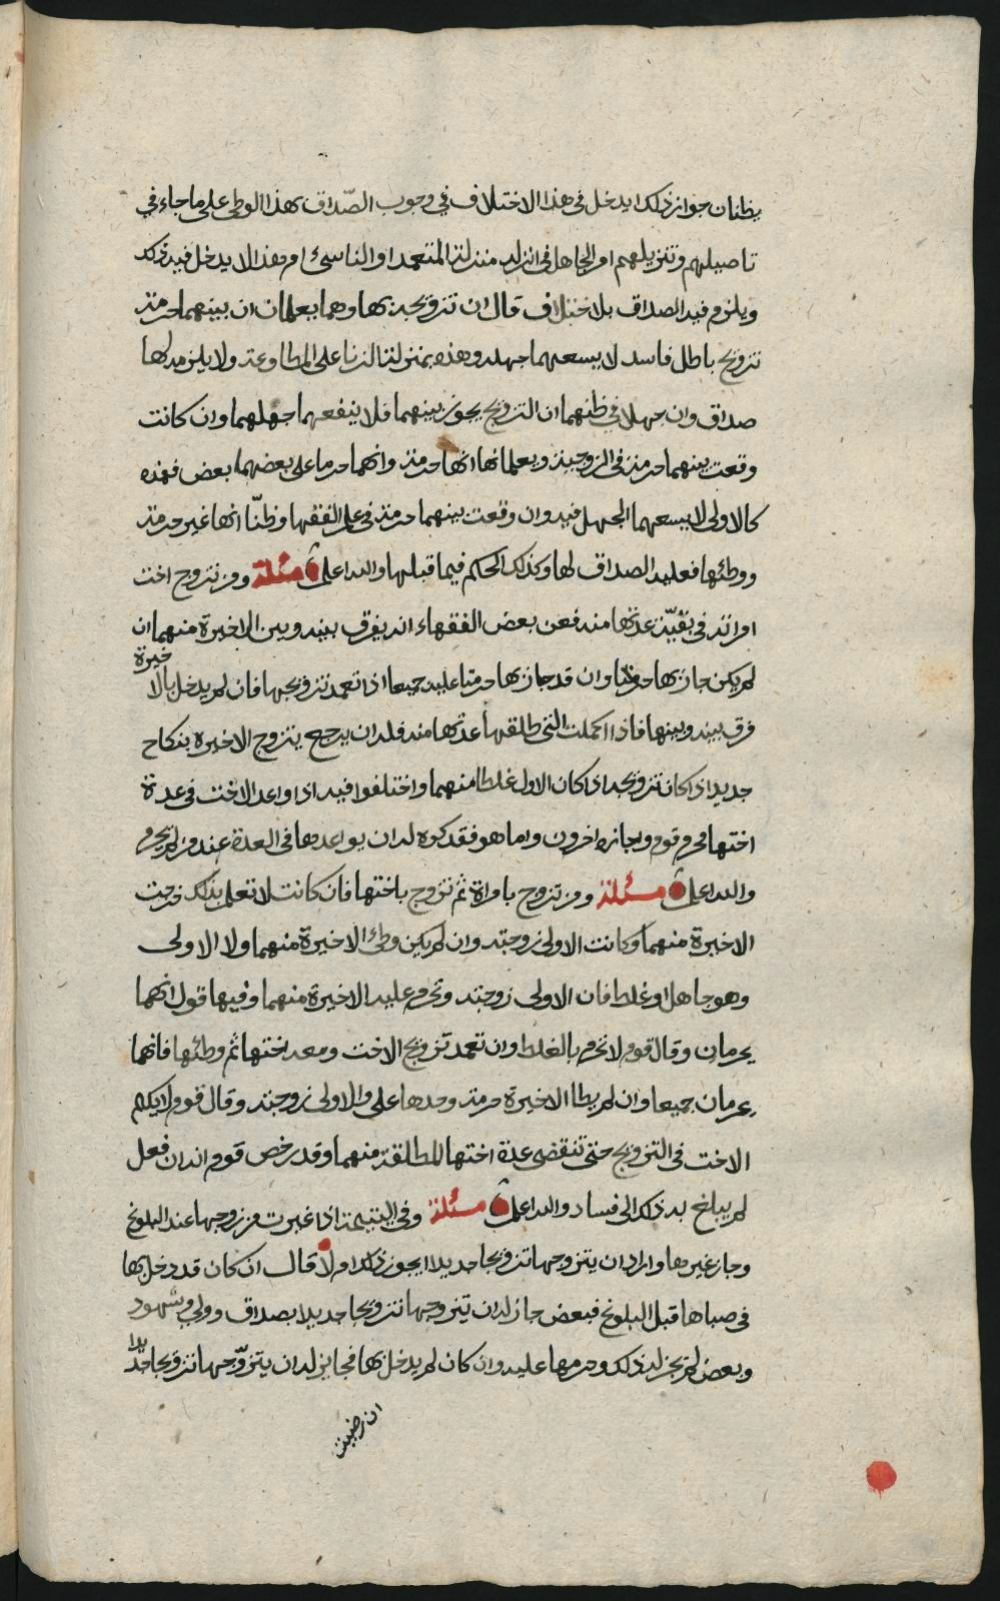 يظنان جواز ذلك ايدخل في هذا الاختلاف في وجوب الصّداق بهذا الوطي على ما جاء في
تاصيلهم وتنزيلهم ام الجاهل في انزله منزلة المتعمد او الناسئ ام هذا لا يدخل فيه ذلك
ويلزم فيه الصداق بلا ختلاف قال ان تزويجه بها وهما يعلمان ان بينهما حرمة
تزويج باطل فاسد لا يسعهما جهله وهذه بمنزلة الزنا على المطاوعة ولا يلزمه لها
صداق وان جهلا في ظنهما ان التزويج يجوز بينهما فلا ينفعهما جهلهما وان كانت
وقعت بينهما حرمة في الزوجية ويعلمانها انها حرمة وانهما حرما على بعضهما بعض فهذه
كالاولى لا يسعهما الجهل فيه وان وقعت بينهما حرمة في علم الفقها وظنّا انها غير حرمة
ووطئها فعليه الصداق لها وكذلك الحكم فيما قبلها والله اعلم مسئلة ومن تزوج اخت
امراته في بقيّة عدتها منه فعن بعض الفقهاء انه يفرق بينه وبين الاخيرة منهما ان
لم يكن جاز بها حرمتا وان قد جاز بها حرمتا عليه جميعا اذا تعمد تزويجها فان لم يدخل بالا
خيرة
فرق بينه وبينها فاذا اكملت التي طلقها عدتها منه فله ان يرجع يتزوج الاخيرة بنكاح
جديد اذا كان تزويجه اذا كان الاول غلطا منهما واختلفوا فيه اذا واعد الاخت في عدة
اختها فحرم قوم واجازه اخرون واما هو فقد كره له ان يواعدها في العدة عند من لم يحرم
والله اعلم مسئلة ومن تزوج بامراة ثم تزوج باختها فان كانت لا تعلم بذلك خرجت
الاخيرة منهما وكانت الاولى زوجته وان لم يكن وطئ الاخيرة منهما ولا الاولى
وهو جاهل او غلط فان الاولى زوجته وتحرم عليه الاخيرة منهما وفيها قول انهما
يحرمان وقال قوم لا تحرم بالغلط وان تعمد تزويج الاخت ومعه اختها ثم وطئها فانهما
يحرمان جميعا وان لم يطا الاخيرة حرمة وحدها على والاولى زوجته وقال قوم لا يكلم
الاخت في التزويج حتى تنقضي عدة اختها المطلقة منهما وقد رخص قوم انه ان فعل
لم يبلغ به ذلك الى فساد والله اعلم مسئلة وفي اليتيمة اذا غيرت من زوجها عند البلوغ
وجاز غيرها واراد ان يتزوجها تزويجا جديدا ايجوز ذلك ام لا قال ان كان قد دخل بها
في صباها قبل البلوغ فبعض جاز له ان يتزوجها تزويجا جديدا بصداق وولي وشهود
وبعض لم يجز له ذلك وحرمها عليه وان كان لم يدخل بها فجايز له ان يتزوّجها تزويجا جديدا
ان رضيت